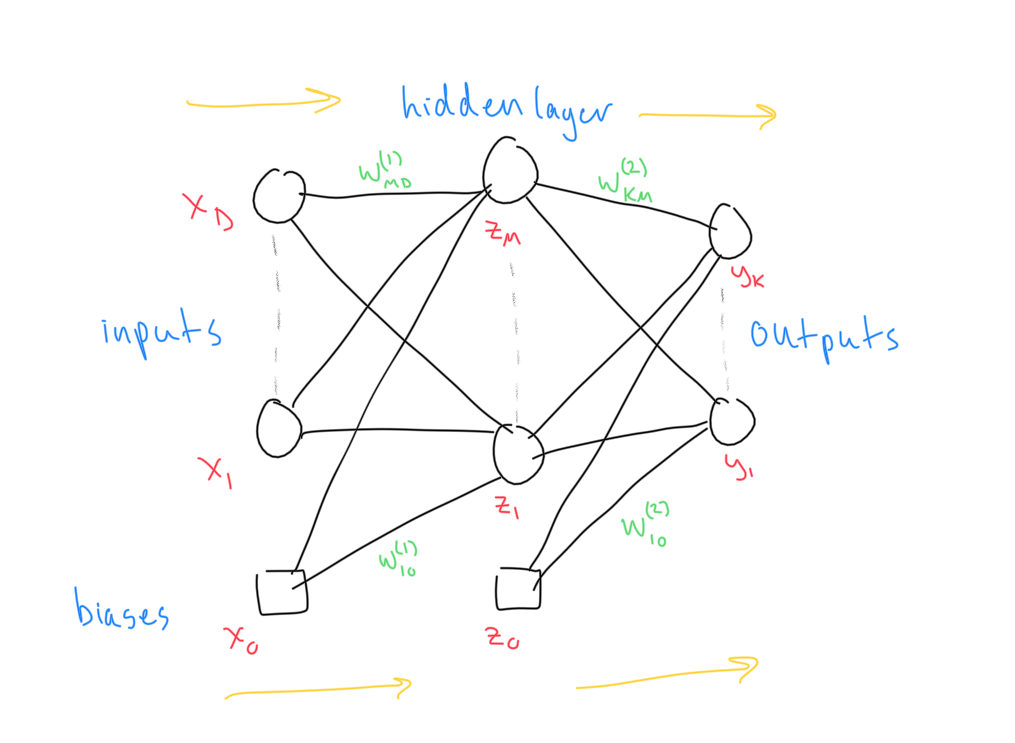 hidden layer
w_{MD}^{(1)}
w_{KM}^{(2)}
x_D
z_M
y_K
inputs
outputs
x_1
z_1
y_1
w_{10}^{(1)}
w_{10}^{(2)}
biases
x_0
z_0